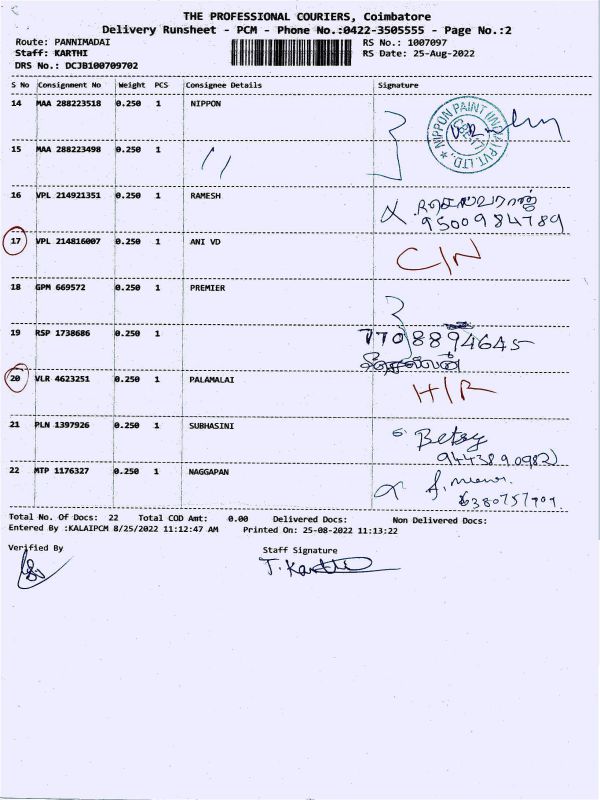 THE PROFESSIONAL COURIERS, Coimbatore
Delivery Runsheet - PCM - Phone No.:0422-3505555 - Page No.:2
Route: PANNIMADAI RS No.: 1007097
Staff: KARTHI RS Date: 25-Aug-2022
DRS No.: DCJB100709702
S No Consignment No Weight PCS Consignee Details Signature
14 MAA 288223518 0.250 1 NIPPON
NIPPON PAINT (INDIA) PVT. LTD.,
15 MAA 288223498 0.250 1 //
16 VPL 214921351 0.250 1 RAMESH செல்வராஜ்
9500984789
17 VPL 214816007 0.250 1 ANI VD C/N
18 GPM 669572 0.250 1 PREMIER
19 RSP 1738686 0.250 1 7708894645
20 VLR 4623251 0.250 1 PALAMALAI H/R
21 PLN 1397926 0.250 1 SUBHASINI Betsy
9443890982
22 MTP 1176327 0.250 1 NAGGAPAN
6380757909
Total No. Of Docs: 22 Total COD Amt: 0.00 Delivered Docs: Non Delivered Docs:
Entered By :KALAIPCM 8/25/2022 11:12:47 AM Printed On: 25-08-2022 11:13:22
Verified By Staff Signature
T. Karthi